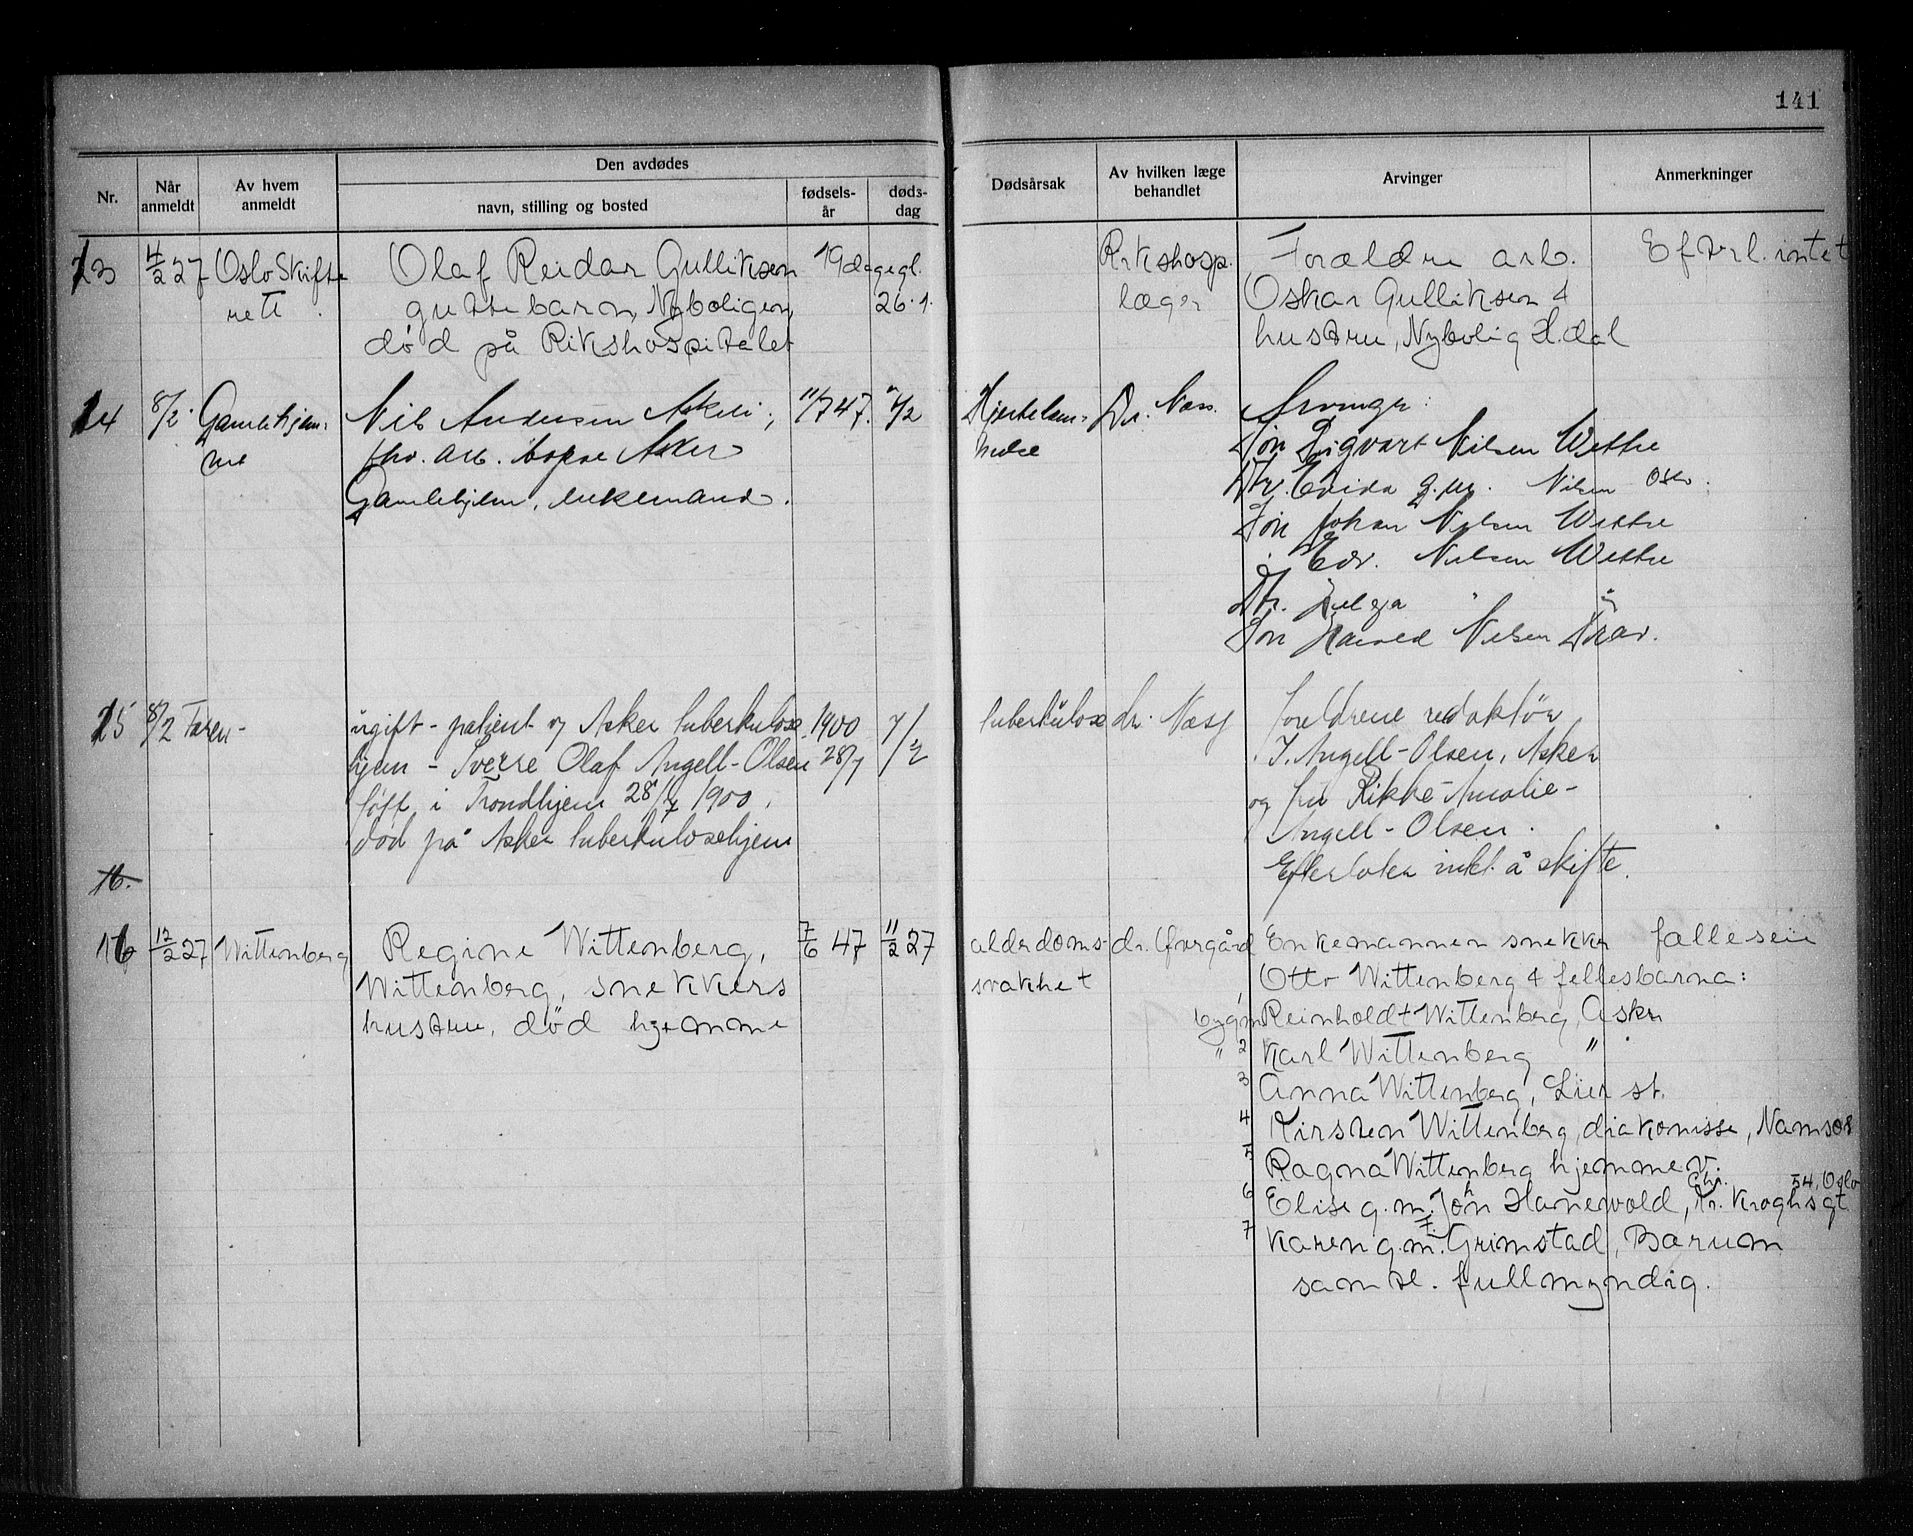 141
Nr.
Når anmeldt
Av hvem anmeldt
Den avdødes
navn, stilling og bosted
fødsels-år
døds-dag
Dødsårsak
Av hvilken læge behandlet
Arvinger
Anmerkninger
13 4/2 27 Oslo Skifte Olaf Reidar Gulliksen 19 dage gl. Rikshosp. Forældre arb. Efterl. intet
rett guttebarn, Nyboligen, 26.1. læger Oskar Gulliksen &
død på Rikshospitalet hustru, Nybolig H.dal
14 8/2 Gamlehjem- Nils Andersen Askeli, 11/7 47. 7/2 Hjertelam- Dr. Næss. Arvinger:
met fhv. arb. Asker melse Søn Sigvart Nilsen Wettre
Gamlehjem, enkemand. Dtr. g.m. Nilsen Oslo.
Søn Johan Nilsen Wettre
" Edv. Nilsen Wettre
Dtr. Helga " "
Søn Harald Nilsen
15 8/2 Faren- ugift - patient Asker tuberkulose 1900 7/2 tuberkulose dr. Næss foreldrene redaktør
hjem - Sverre Olaf Angell-Olsen 28/7 J. Angell-Olsen, Asker
født i Trondhjem 28/7 1900, og fru Rikke Amalie-
død på Asker tuberkulosehjem Angell-Olsen.
16. Efterlater intet å skifte.
16 12/2 27 Wittenberg Regine Wittenberg, 7/6 47 11/2 27 alderdoms- dr. Enkemannen snekker felleseie
Wittenberg, snekkers svakhet Otto Wittenberg & fellesbarna:
hustru, død hjemme bygm. Reinholdt Wittenberg, Asker
" 2 Karl Wittenberg "
3 Anna Wittenberg, Lier st.
4 Kirsten Wittenberg, diakonisse, Namsos
5 Ragna Wittenberg hjemmev.
6 Elise g.m. John Hanevold, Chr. Kroghsgt 54, Oslo
7 Karen g.m. F. Grimstad, Bærum
samtl. fullmyndig.